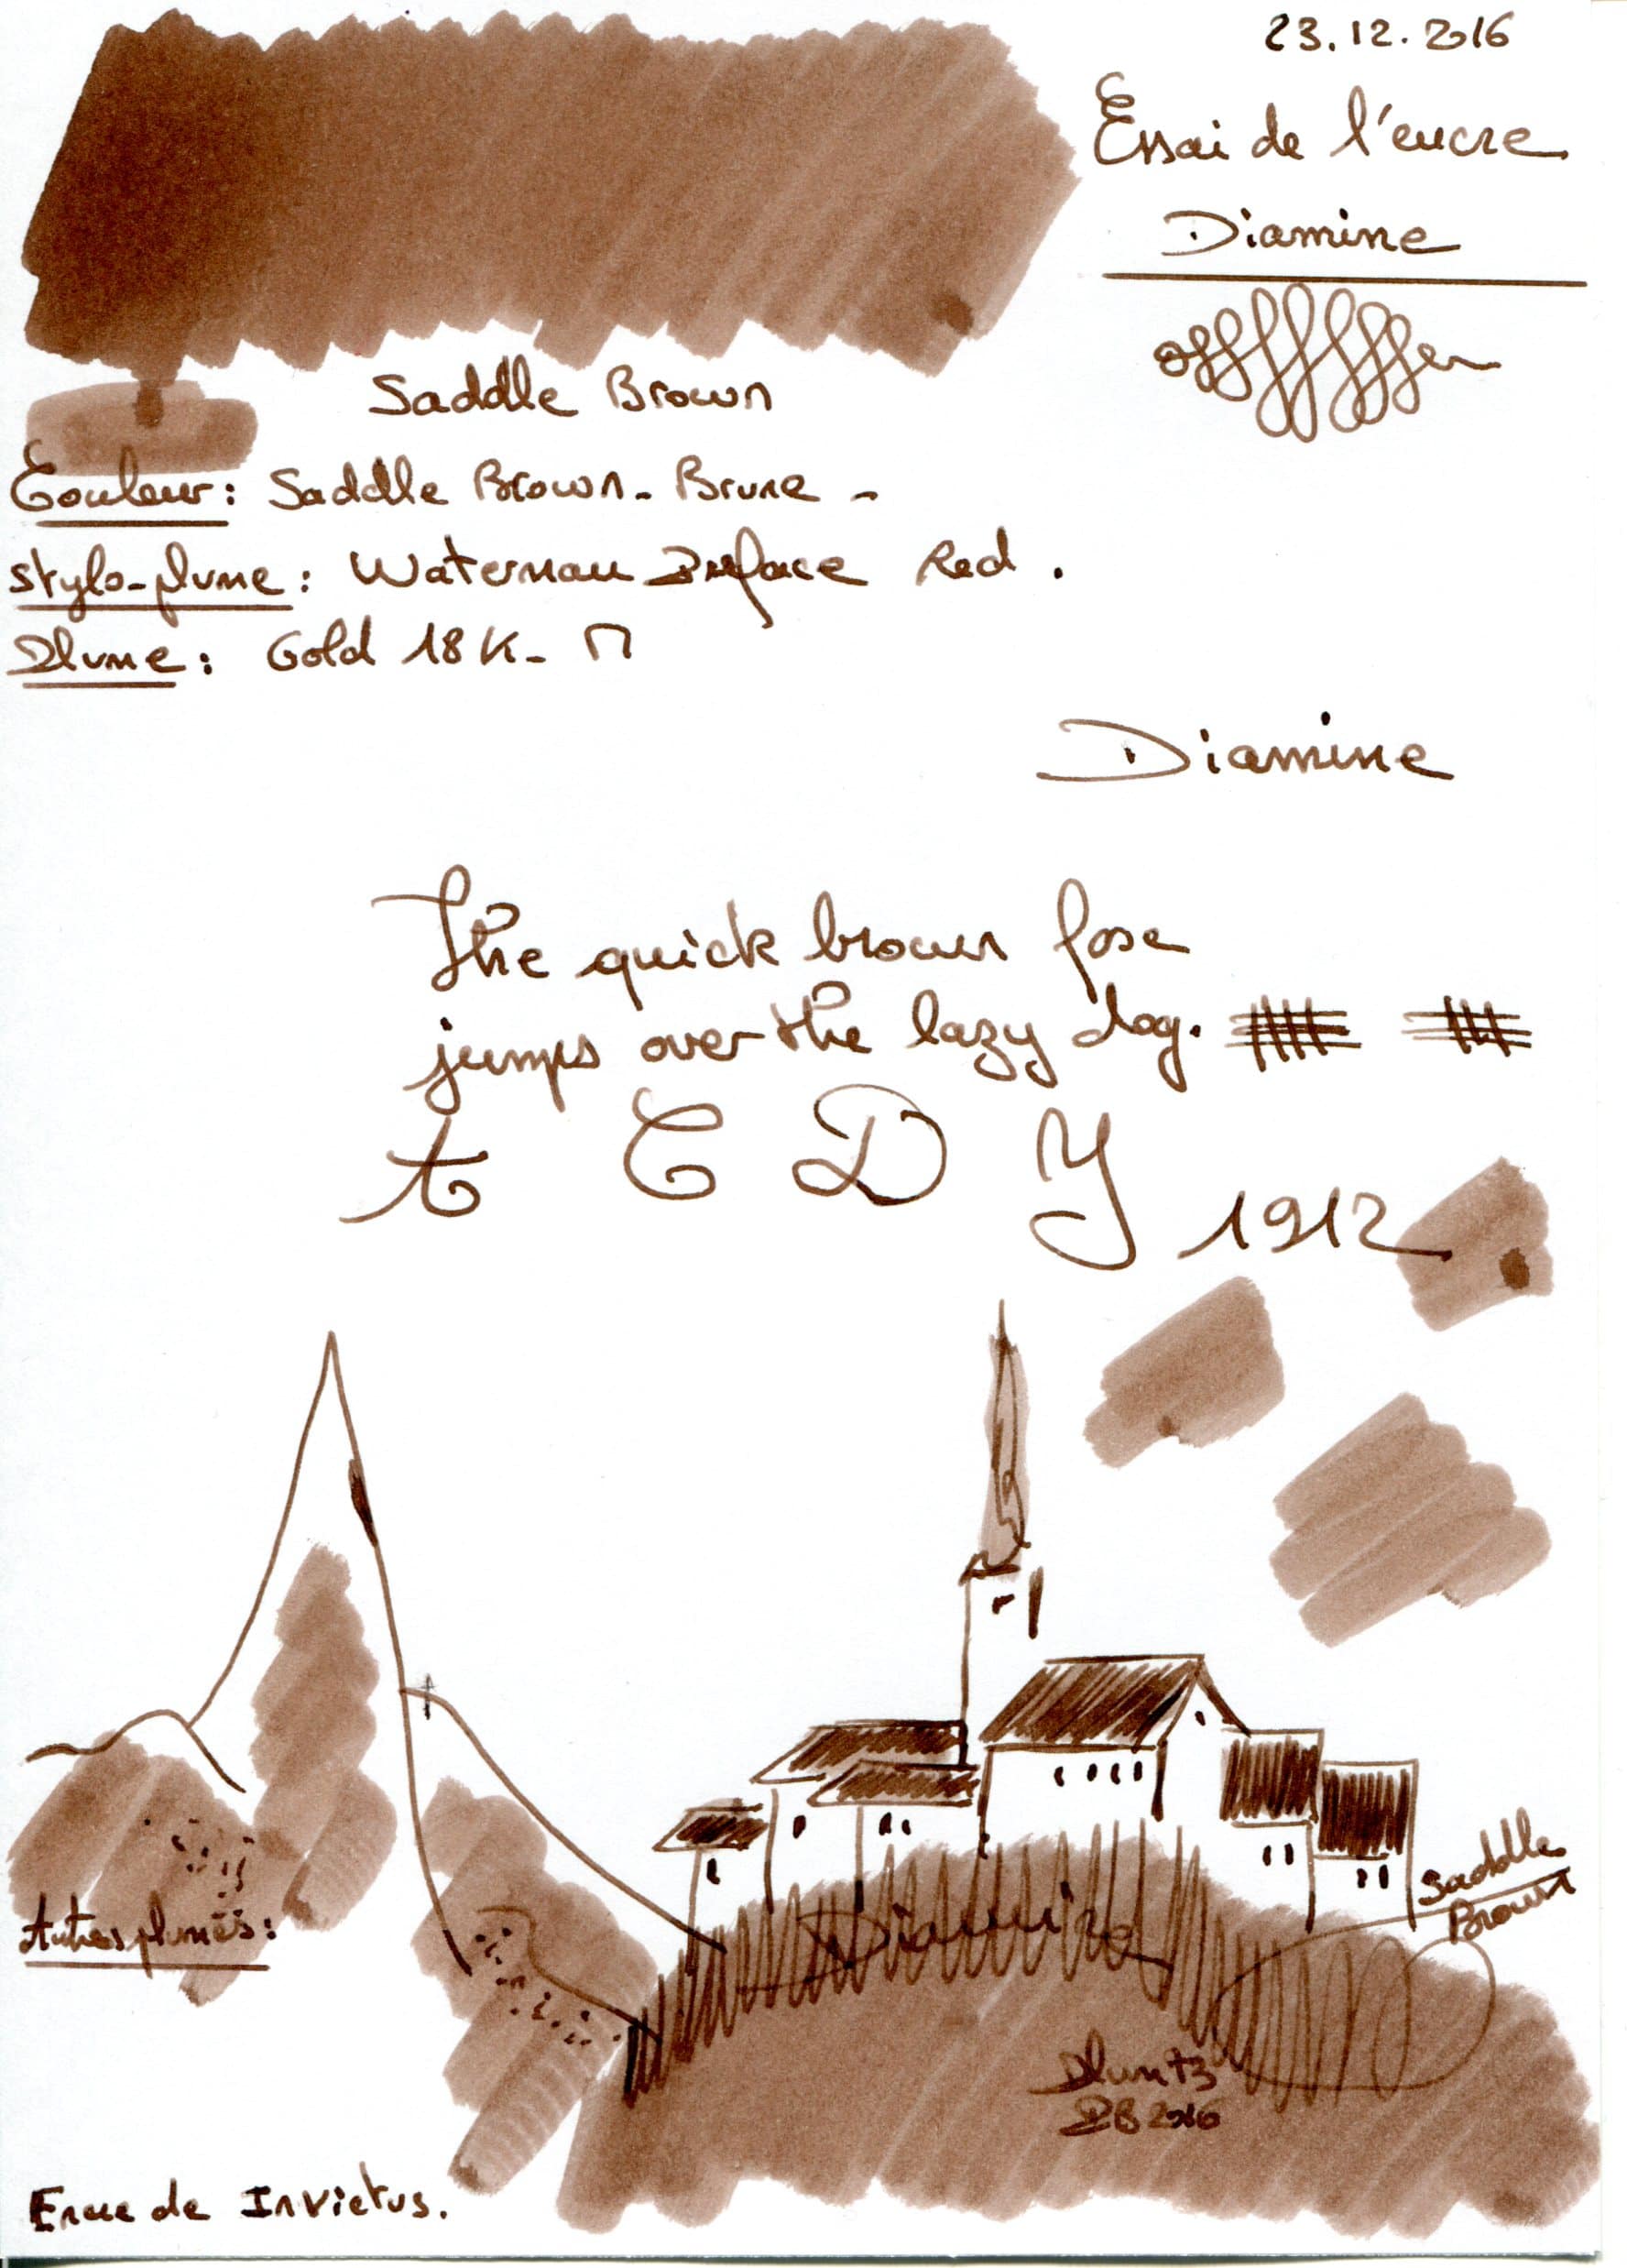 23.12.2016
Essai de l'encre
Diamine
Saddle Brown
Couleur: Saddle Brown - Brune -
Stylo-plume: Waterman Préface Red.
Plume: Gold 18K - M
Diamine
The quick brown fox
jumps over the lazy dog.
A C D Y 1912
Saddle
Brown
Autres plumes:
Diamine
Pluntz
PB 2016
Encre de Invictus.